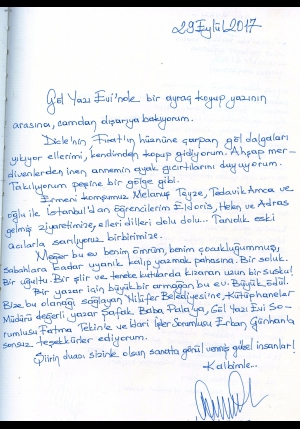 29 Eylül 2017
Göl Yazı Evi'nde bir ayraç koyup yazının
arasına, camdan dışarıya bakıyorum.
Dicle'nin Fırat'ın hüznüne çarpan göl dalgaları
yıkıyor ellerimi, kendimden kopup gidiyorum. Ahşap mer-
divenlerden inen annemin ayak gıcırtılarını duyuyorum.
Takılıyorum peşine bir gölge gibi.
Ermeni komşumuz Melanuş Teyze, Tedavik Amca ve
oğlu ile İstanbul'dan öğrencilerim Eldoris, Helen ve Adras
gelmiş ziyaretimize, elleri dilleri dolu dolu... Tanıdık eski
acılarla sarılıyoruz birbirimize.
Meğer bu ev benim ömrüm, benim çocukluğummuş,
sabahlara kadar uyanık kalıp yazmak pahasına. Bir soluk.
Bir uğultu. Bir şiir ve teneke kutularda kızaran uzun bir suskul
Bir yazar için büyük bir armağan bu ev. Büyük ödül.
Bize bu olanağı sağlayan Nilüfer Belediyesine, Kütüphaneler
Müdürü değerli yazar Şafak Baba Pala'ya, Göl Yazı Evi So-
rumlusu Fatma Tekin'e ve İdari İşler Sorumlusu Erban Günhan'a
sonsuz teşekkürler ediyorum.
Şiirin duası sizinle olsun sanata gönül vermiş güzel insanlar!
Kalbimle...